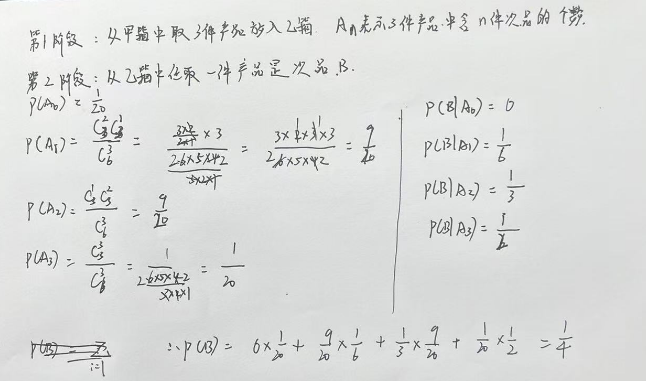 第1阶段：从甲箱中取3件产品放入乙箱. Aₙ表示3件产品中含n件次品的个数.
第2阶段：从乙箱中任取一件产品是次品.B.
P(A₀) = 1/20
P(A₁) = C₃²C₃¹/C₆³ = = = 9/20
P(A₂) = C₃¹C₃²/C₆³ = 9/20
P(A₃) = C₃³/C₆³ = = 1/20
P(B|A₀) = 0
P(B|A₁) = 1/6
P(B|A₂) = 1/3
P(B|A₃) = 1/2
∴P(B) = 0×1/20 + 9/20×1/6 + 1/3×9/20 + 1/20×1/2 = 1/4